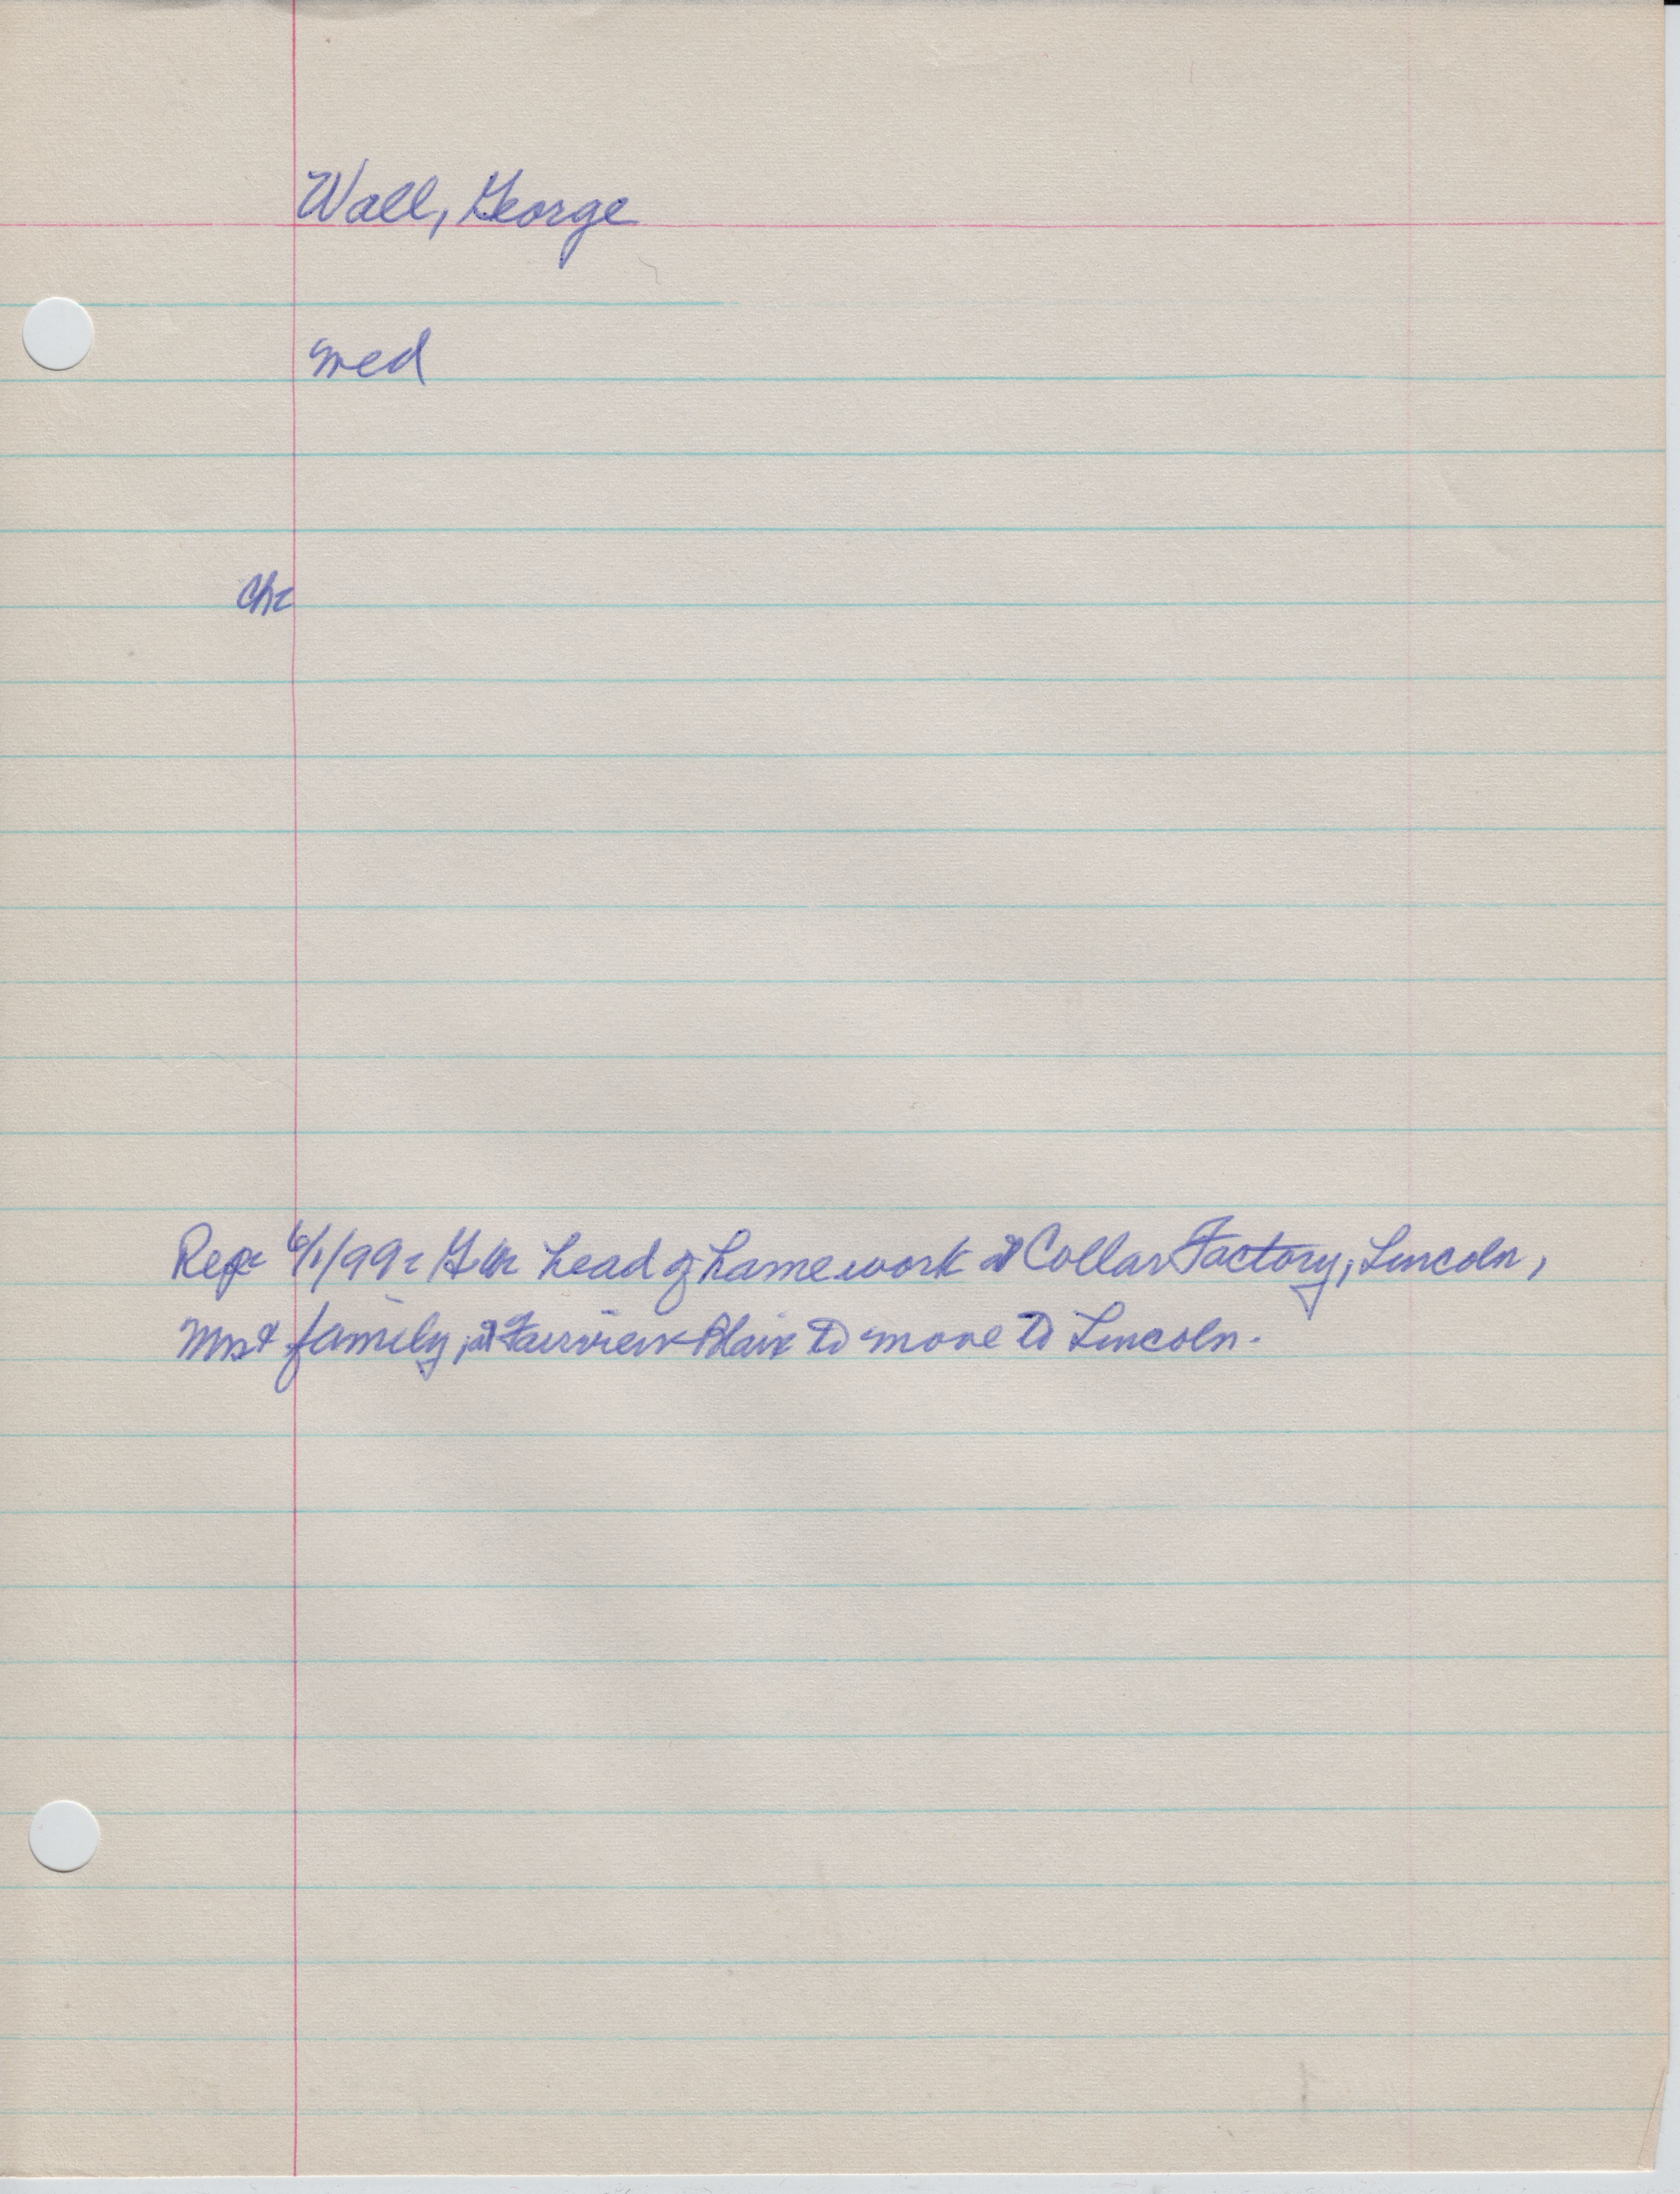 Wall, George
med
Ch:
Rep: 6/1/99: Geo head of hame work at Collar Factory, Lincoln,
Mrs & family, at Fairview Blair to move to Lincoln.